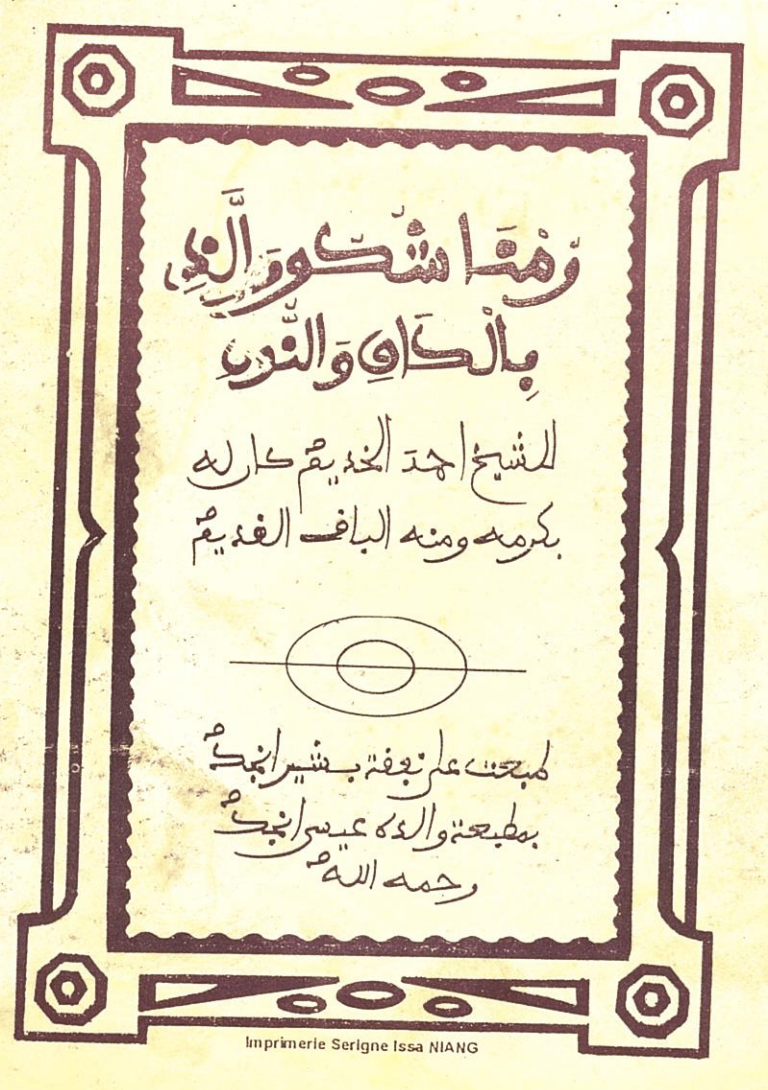 رُمْنَا شكورَ الَّذِى
بِالْكَافِ وَالنُّونِ
للشيخ احمد الخديم كان له
بكرمه ومنه الباق القديم
طبعت على نفقة بشير
بمطبعة والده عيسى
رحمه الله
Imprimerie Serigne Issa NIANG